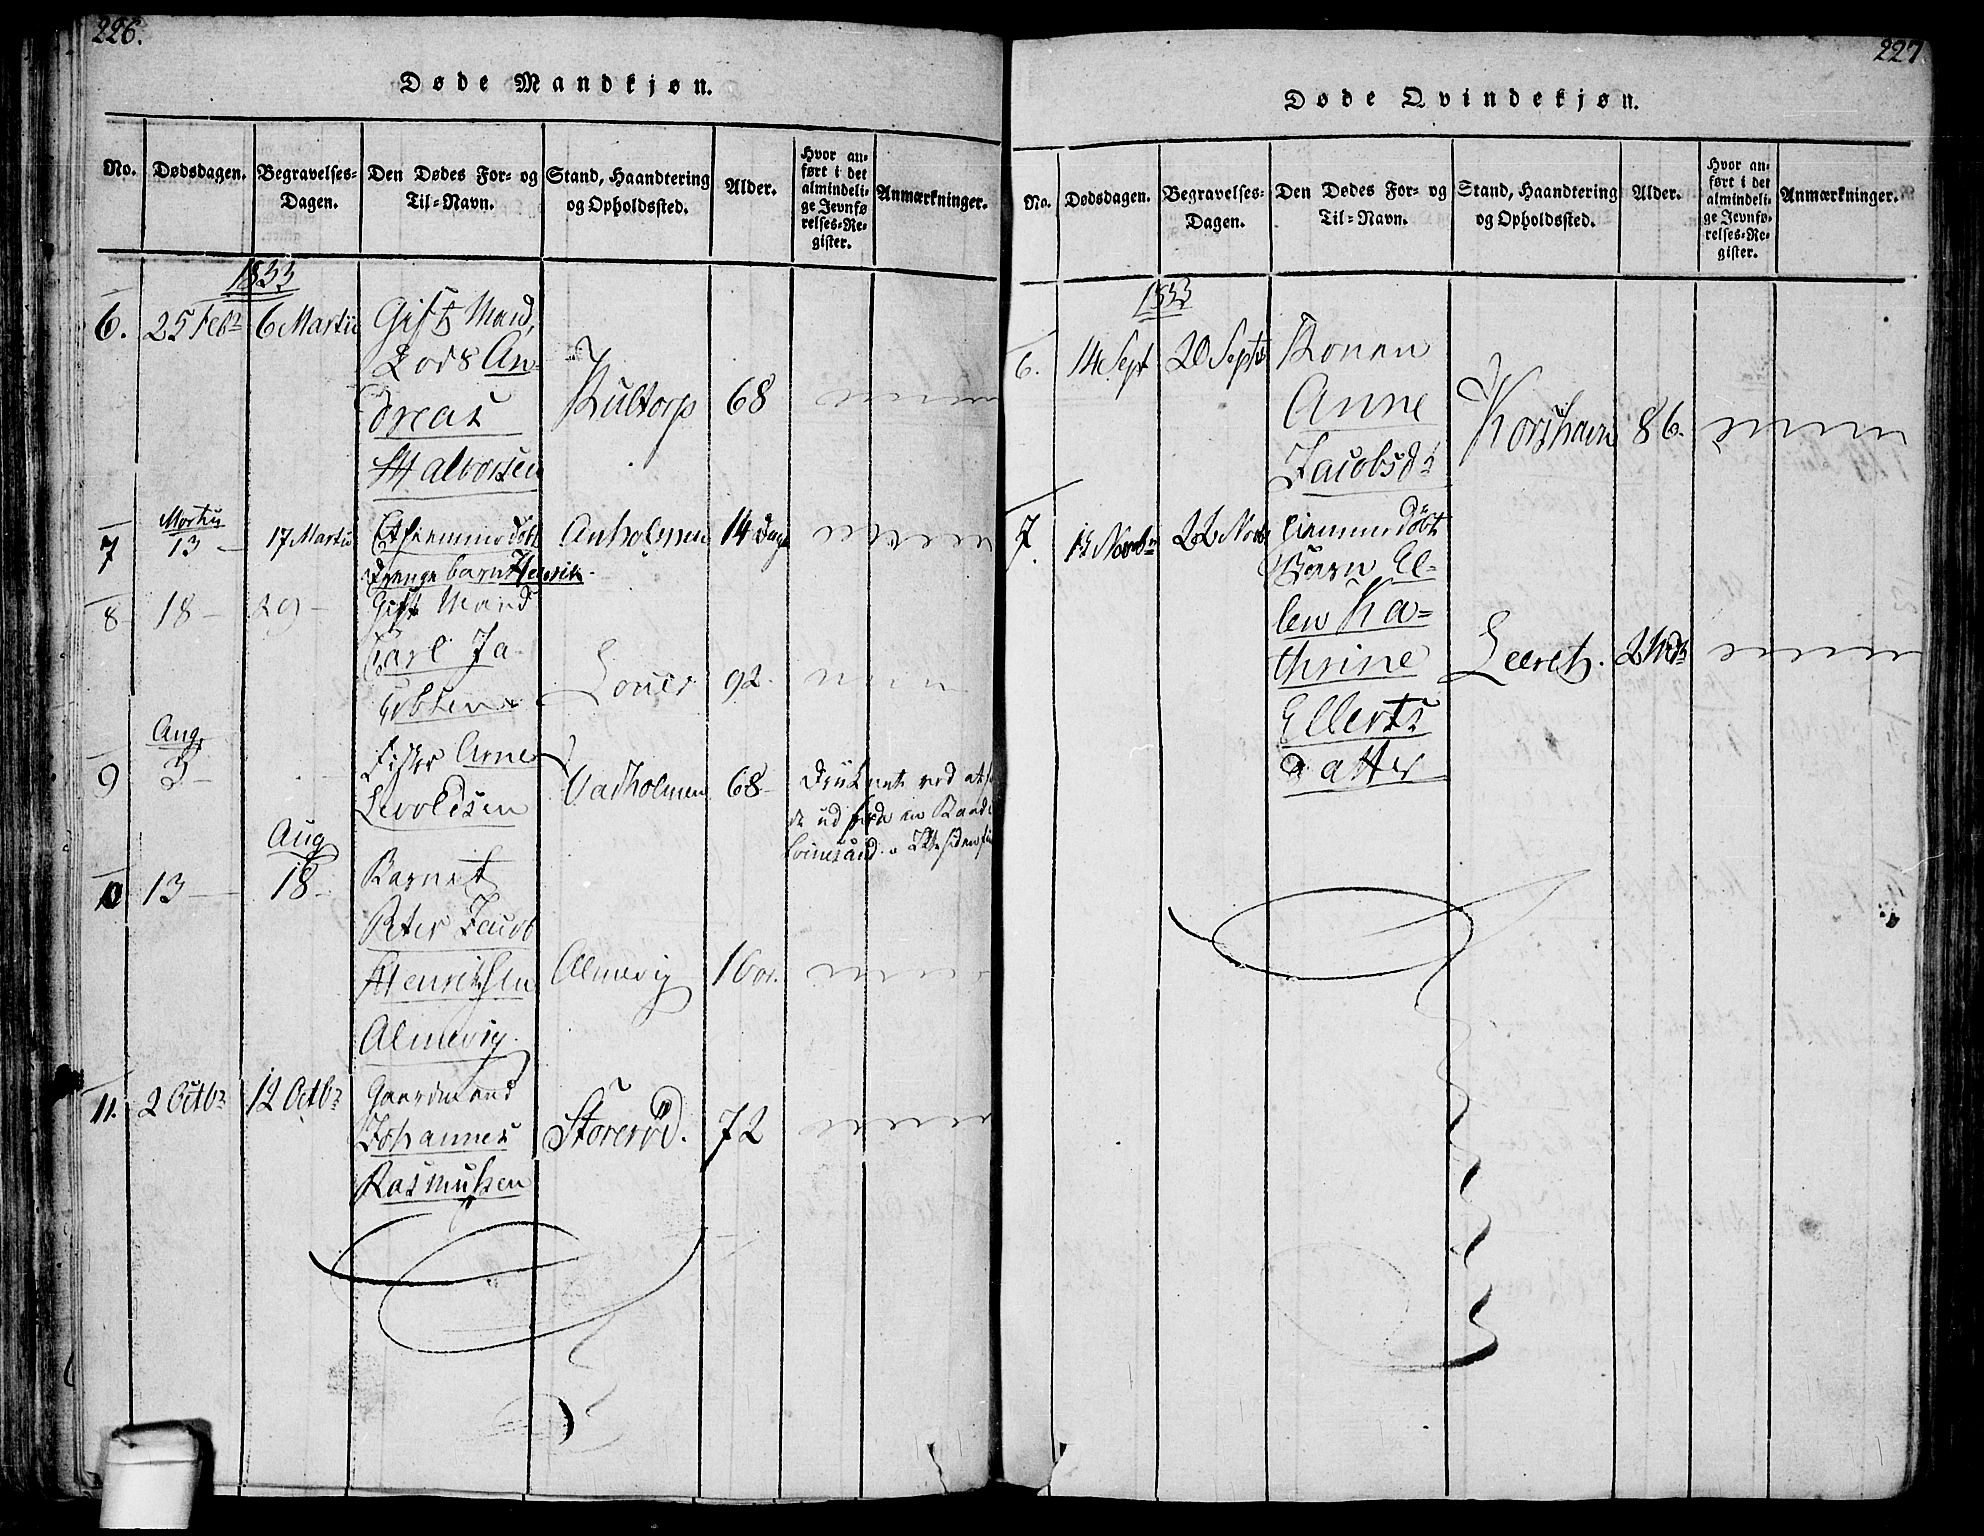 226.
Døde Mandkjøn.
No. Dødsdagen. Begravelses-Dagen. Den Dødes For- og Til-Navn. Stand, Haandtering og Opholdssted. Alder. Hvor anført i det almindelige Jevnførelses-Register. Anmærkninger.
1833
6. 25 Febr 6 Martii Gift Mand,
Lods An-
dreas
Halvorsen
Kultorp 68
Martii
7 13 17 Martii
Drengebarn Henrik
Anholmen 14 Dage
8 18 29 Gift Mand
Carl Ja-
cobsen
Louer 92
Aug.
9 3 Fisker Arne
Levoldsen
Vadholmen 68
Druknet ved at
Aug
10 13 18 Barnet
Peter Jacob
Henrichsen
Almevig
Almevig
11. 2 Octbr 12 Octbr Gaardmand
Johannes
Rasmussen
Storerød. 72
227
Døde Qvindekjøn.
No. Dødsdagen. Begravelses-Dagen. Den Dødes For- og Til-Navn. Stand, Haandtering og Opholdssted. Alder. Hvor anført i det almindelige Jevnførelses-Register. Anmærkninger.
1833
6. 14 Sept 20 Septbr Konen
Anne
Jacobsdr
Korshavn 86.
7. 14 Novbr 22 Novbr Hiemmedøbt
Barn El-
len Ka-
thrine
Ellerts
datter
Leeret.